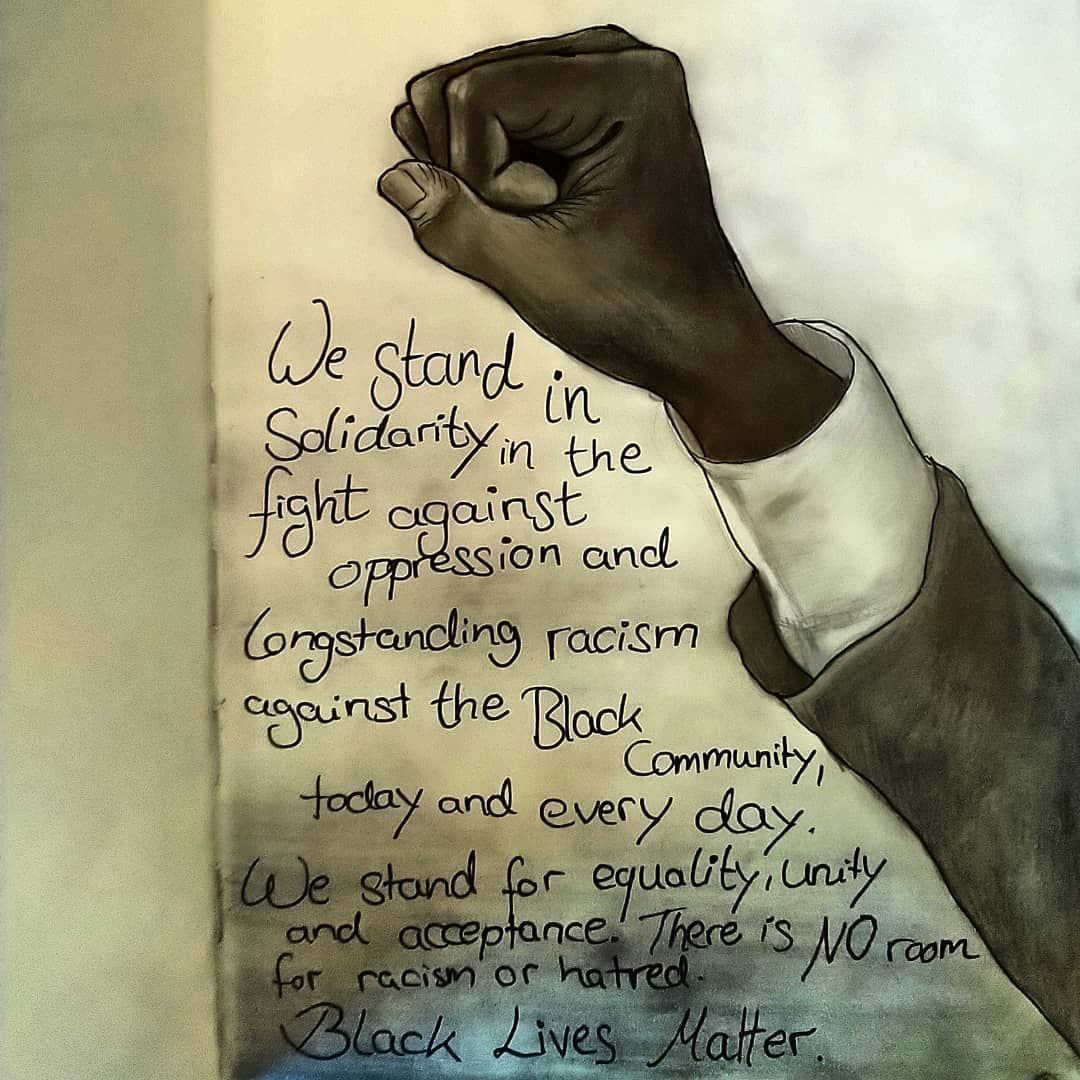 We stand in
Solidarity in the
fight against
oppression and
Longstanding racism
against the Black
Community,
today and every day.
We stand for equality, unity
and acceptance. There is NO room
for racism or hatred.
Black Lives Matter.